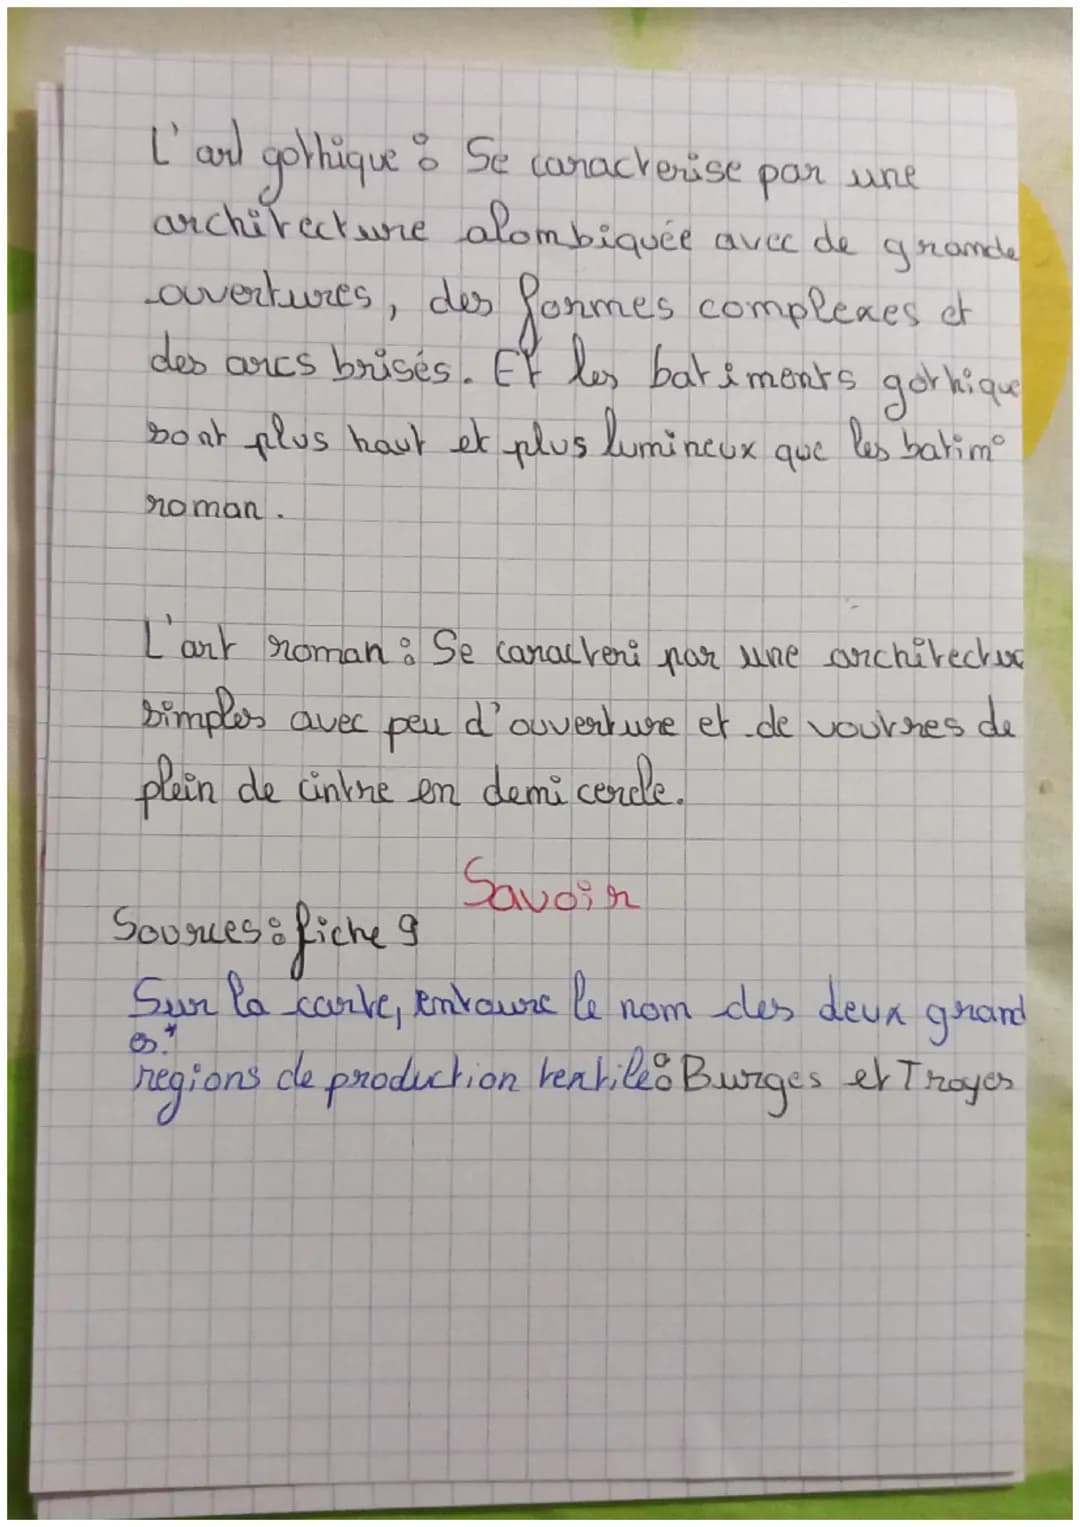 L'art gothique : Se caracterise par une
architecture alombiquée avec de grande
ouvertures, des formes complexes et
des arcs brisés. Et les batiments gothique
sont plus haut et plus lumineux que les batim°
roman.
L'art roman : Se caracteri par une architectu
simples avec peu d'ouverture et de voutres de
plein de cintre en demi cercle.
Savoir
Sources : fiche 9
Sur la carte, entoure le nom des deux grand
es.*
regions de production textile : Burges et Troyes